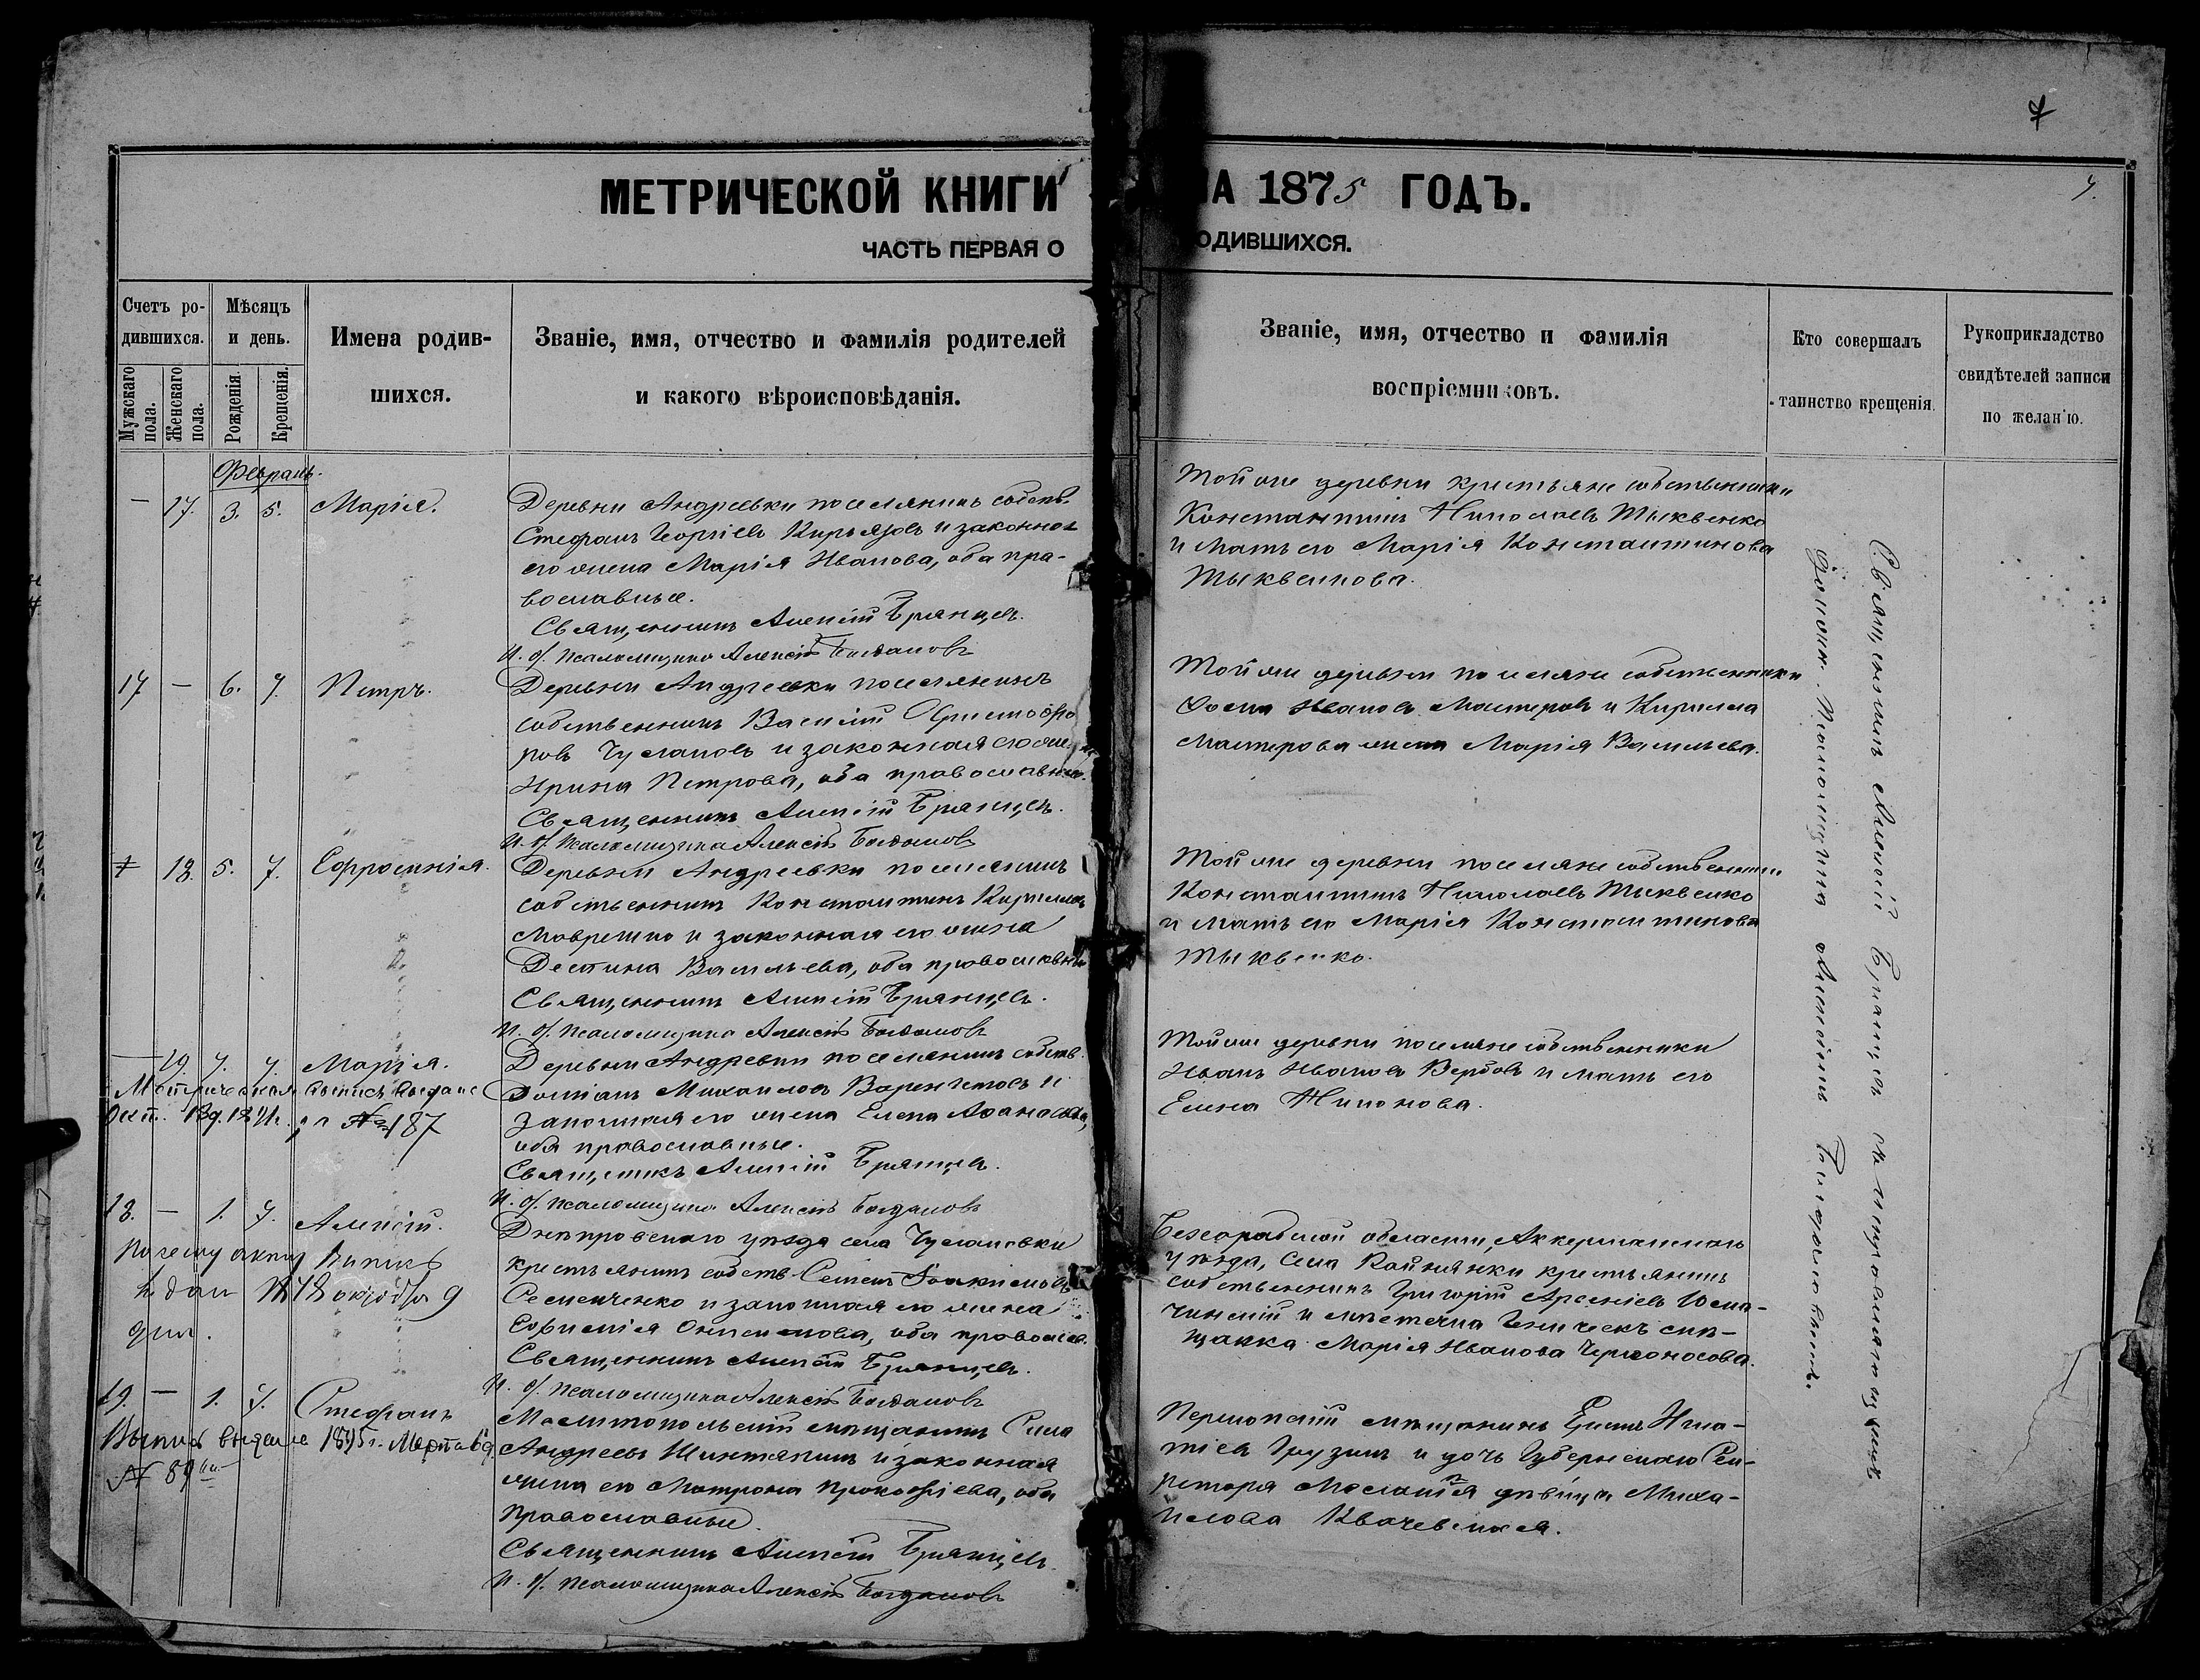 7
МЕТРИЧЕСКОЙ КНИГИ НА 1875 ГОДЪ.
7.
ЧАСТЬ ПЕРВАЯ О РОДИВШИХСЯ.
Счетъ родившихся.
Мужскаго пола.
Женскаго пола.
Мѣсяцъ и день.
Рожденія.
Крещенія.
Имена родив-
шихся.
Званіе, имя, отчество и фамилія родителей
и какого вѣроисповѣданія.
Званіе, имя, отчество и фамилія
воспріемниковъ.
Кто совершалъ
таинство крещенія.
Рукоприкладство
свидѣтелей записи
по желанію.
Февраль.
— 17. 3. 5. Марія.
Деревни Андреевки поселянинъ собств.
Стефанъ Георгіевъ Кирьязовъ и законная
его жена Марія Иванова, оба пра-
вославные.
Священникъ Алексій Брянцевъ.
И. д. Псаломщика Алексій Богдановъ
Той же деревни крестьяне собственники
Константинъ Николаевъ Тыквенко
и мать его Марія Константинова
Тыквенкова.
17 — 6. 7. Петръ.
Деревни Андреевки поселянинъ
собственникъ Василій Христофо
ровъ Чуслановъ и законная его жена
Ирина Петрова, оба православные.
Священникъ Алексій Брянцевъ.
И. д. Псаломщика Алексій Богдановъ
Той же деревни поселяне собственники
Иванов Мастеровъ и Кирилла
Мастерова жена Марія Васильева.
18. 5. 7. Ефросинія.
Деревни Андреевки поселянинъ
собственникъ Константинъ Кириллов
и законная его жена
Деспина Васильева, оба православные
Священникъ Алексій Брянцевъ.
И. д. Псаломщика Алексій Богдановъ
Той же деревни поселяне собственники
Константинъ Николаевъ Тыквенко
и мать его Марія Константинова
Тыквенко.
— 19. 7. 7. Марія.
Метрическая выпись выдана
Окт. за № 187
Деревни Андреевки поселянинъ собств.
Михаиловъ и
законная его жена Елена Афанасьева,
оба православные.
Священникъ Алексій Брянцевъ.
И. д. Псаломщика Алексій Богдановъ
Той же деревни поселяне собственники
Иванъ Ивановъ Вербовъ и мать его
Елена Никонова.
18. — 1. 7. Алексій.
дня.
Днѣпровскаго уѣзда села Чуслановки
крестьянинъ собств. Семенъ Іоакимовъ
Семенченко и законная его жена
Евфимія Онисимова, оба правосл.
Священникъ Алексій Брянцевъ.
И. д. Псаломщика Алексій Богдановъ
Бессарабской области, Аккерманскаго
уѣзда, села крестьянинъ
собственникъ Григорій Арсеніевъ
и мѣстечка Геническъ мѣ-
щанка Марія Иванова Черноносова.
19. — 1. 7. Стефанъ
Выпись выдана 1895 г. Марта 6 д.
№ 89
Мелитопольскій мѣщанинъ Сила
Андреевъ и законная
жена его Матрона Прокофіева, оба
православные.
Священникъ Алексій Брянцевъ
И. д. Псаломщика Алексій Богдановъ
Перекопскій мѣщанинъ Игна-
тіевъ Грузинъ и дочь Губернскаго Сек-
ретаря дѣвица Миха-
илова Квачевская.
Священникъ Алексій Брянцевъ съ исправляющимъ
должн. Псаломщика Алексіемъ Богдановымъ.